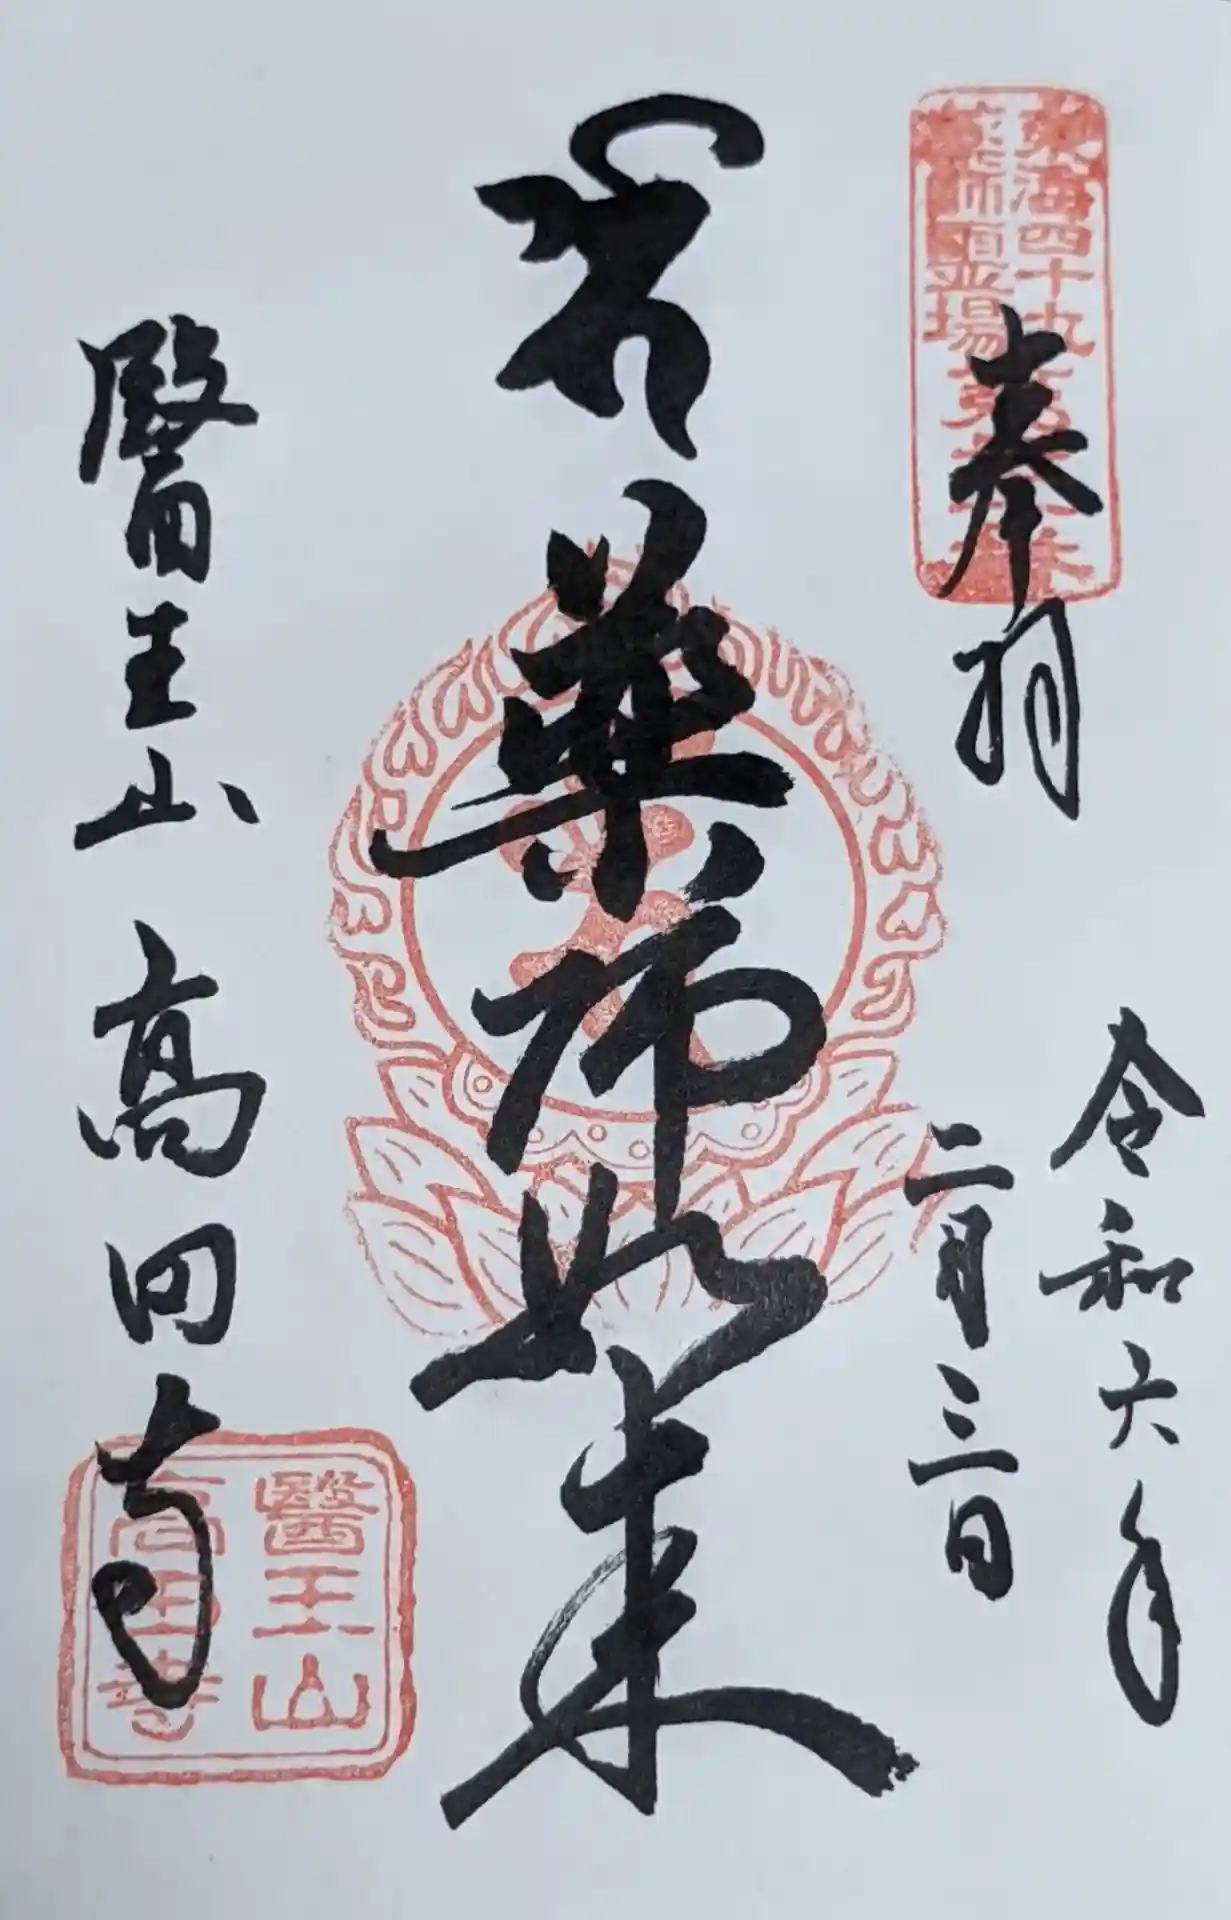 奉拝
令和六年
二月三日
薬師如来
醫王山 高田寺
東海四十九
薬師霊場第
醫王山
高田寺